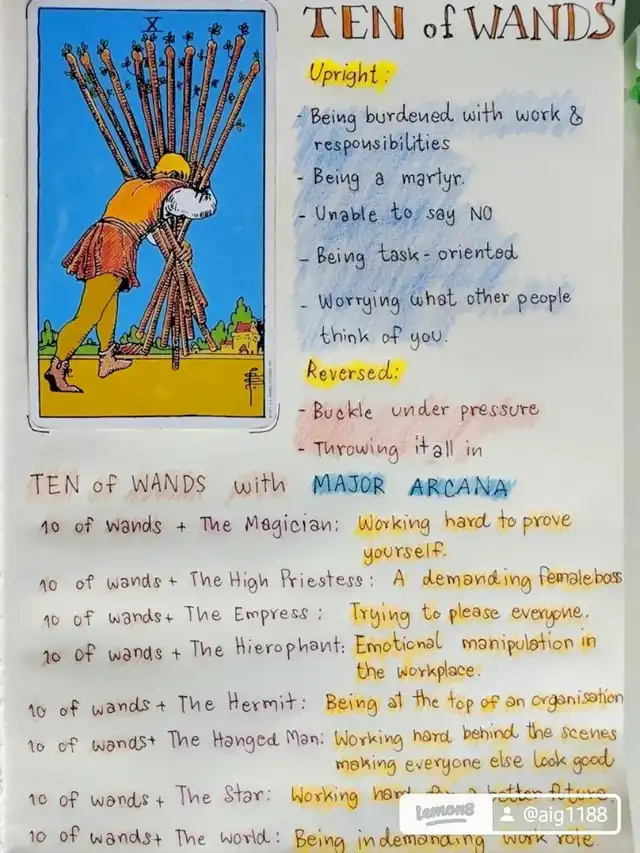 X
TEN of WANDS
Upright:
- Being burdened with work &
responsibilities
- Being a martyr.
- Unable to say NO
- Being task-oriented
- Worrying what other people
think of you.
Reversed:
- Buckle under pressure
- Throwing it all in
TEN of WANDS with MAJOR ARCANA
10 of wands + The Magician: Working hard to prove
yourself.
10 of wands + The High Priestess: A demanding female boss
10 of wands + The Empress: Trying to please everyone.
10 of wands + The Hierophant: Emotional manipulation in
the workplace.
10 of wands + The Hermit: Being at the top of an organisation
10 of wands + The Hanged Man: Working hard behind the scenes
making everyone else look good
10 of wands + The Star: Working hard for a better future.
10 of wands + The world: Being in demanding work role.
lemon8
@aig1188